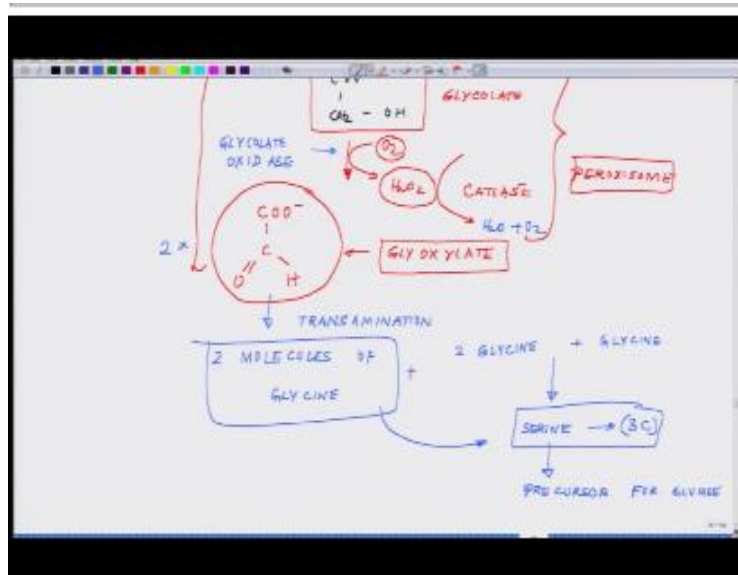 CH₂ - OH
GLYCOLATE
GLYCOLATE
OXIDASE
O₂
H₂O₂
CATLASE
H₂O + O₂
PEROXISOME
2 x
COO⁻
C
O H
GLYOXYLATE
TRANSAMINATION
2 MOLECULES OF
GLYCINE
+
2 GLYCINE + GLYCINE
SERINE → (3C)
PRECURSOR FOR